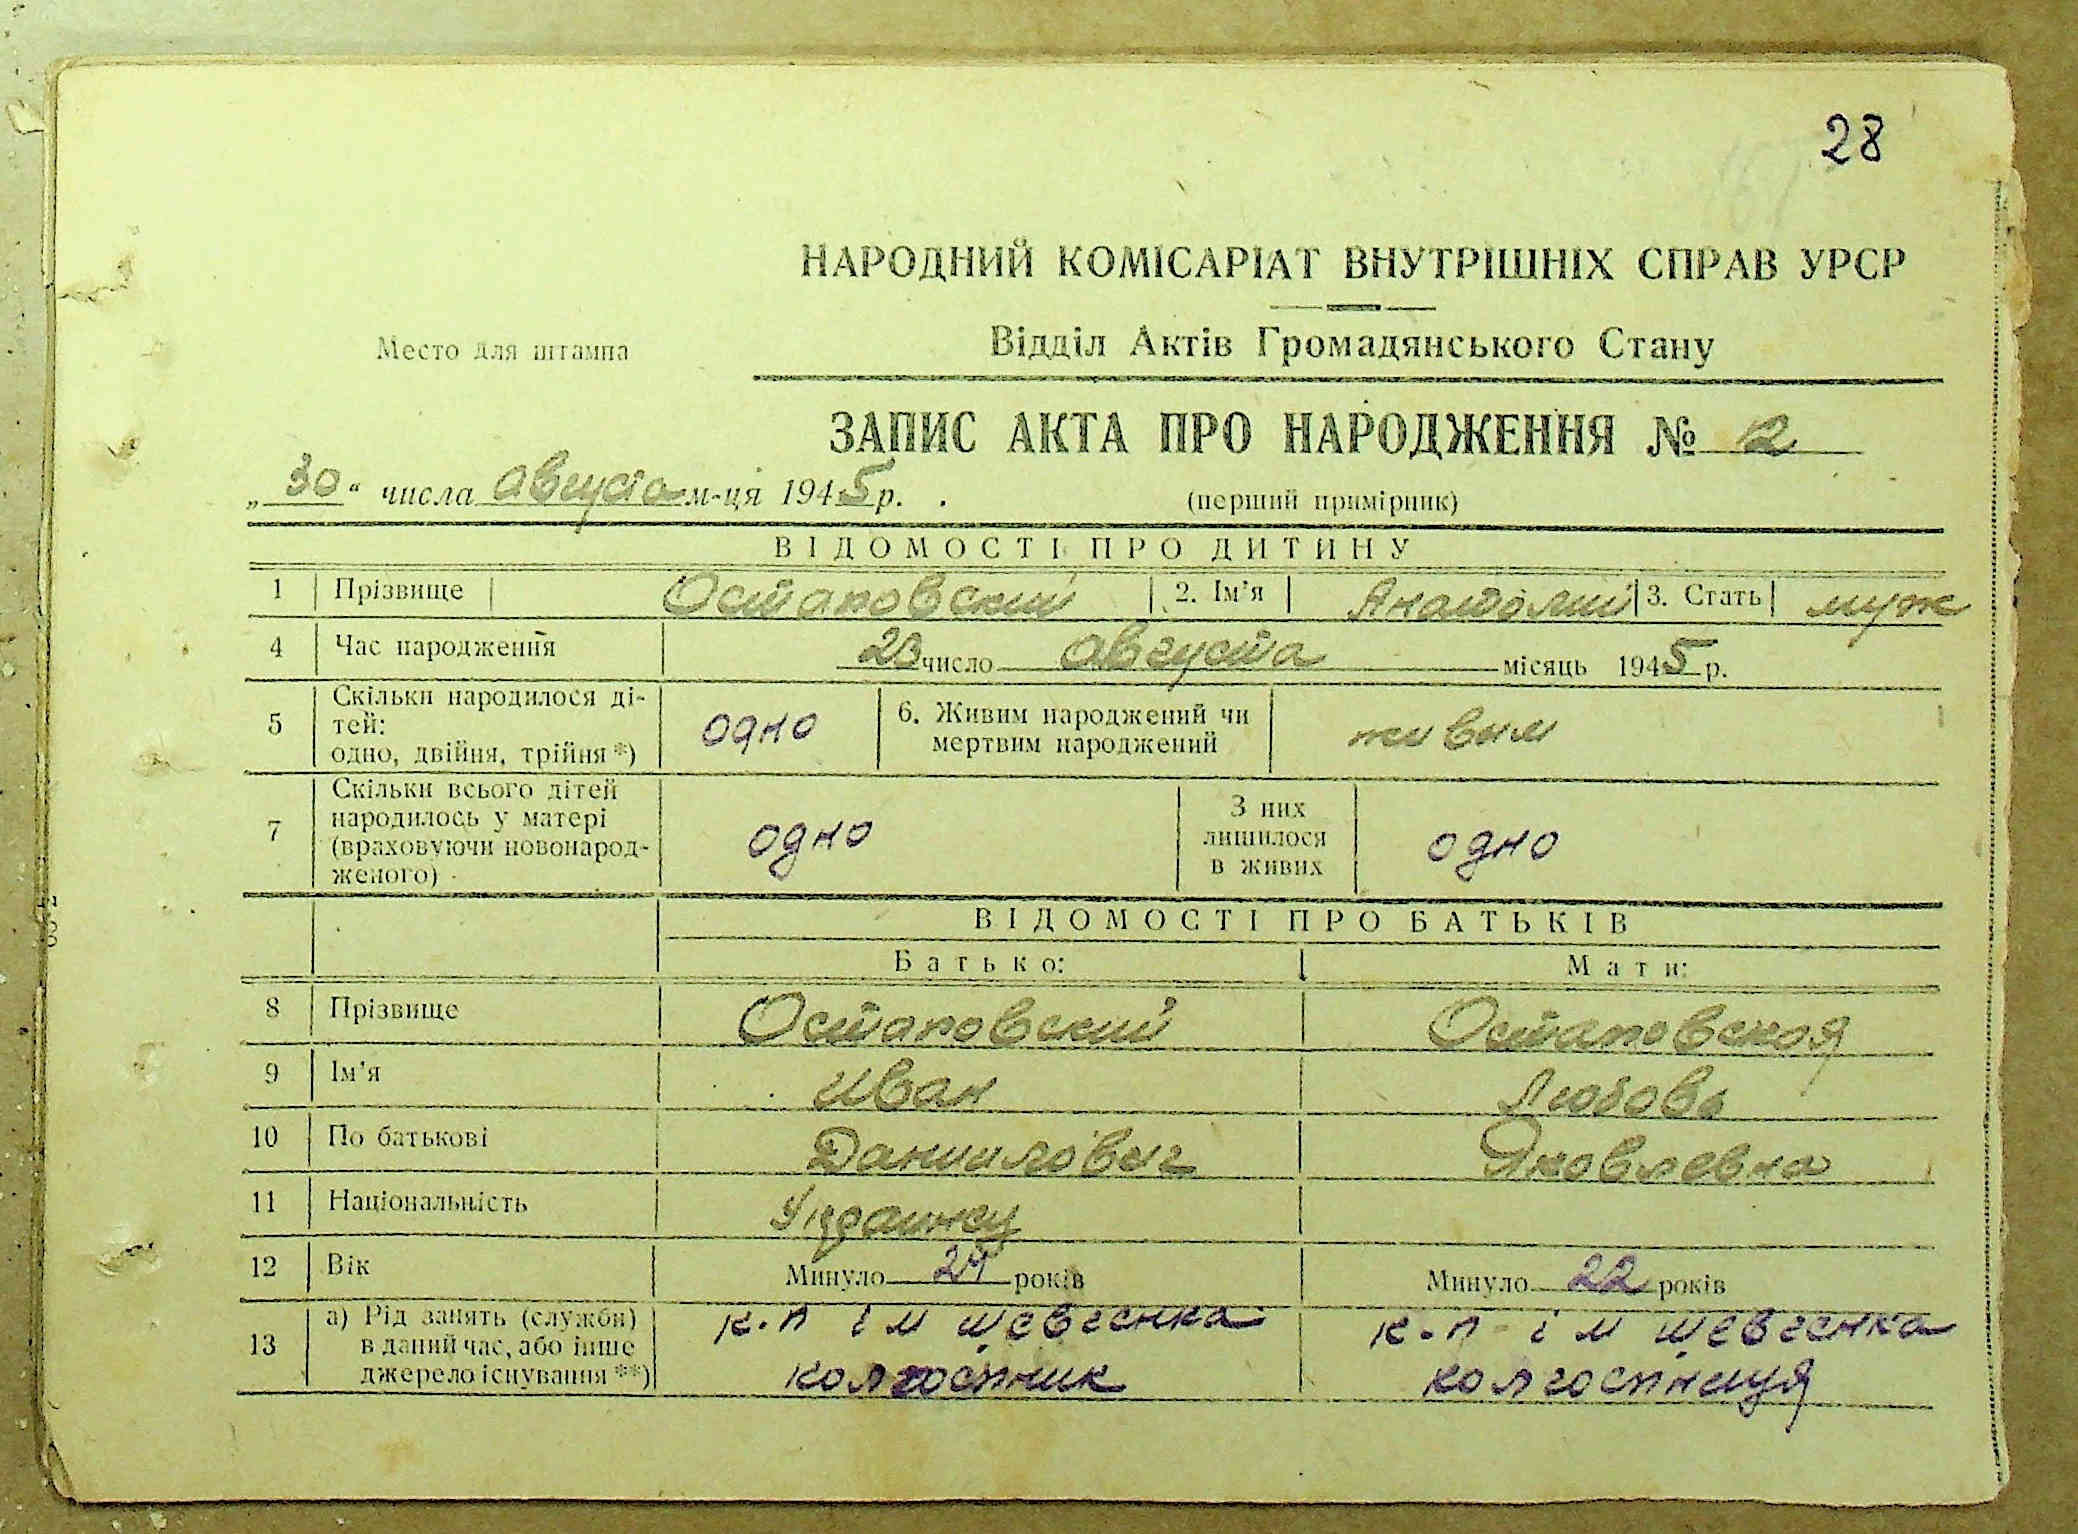 28
НАРОДНИЙ КОМІСАРІАТ ВНУТРІШНІХ СПРАВ УРСР
Место для штампа
Відділ Актів Громадянського Стану
ЗАПИС АКТА ПРО НАРОДЖЕННЯ № 12
„30“ числа августа м-ця 1945 р.
(перший примірник)
ВІДОМОСТІ ПРО ДИТИНУ
1 Прізвище Остаповский 2. Ім'я Анатолий 3. Стать муж
4 Час народження 23 число августа місяць 1945 р.
5 Скільки народилося ді-
тей:
одно, двійня, трійня*) одно 6. Живим народжений чи
мертвим народжений живим
7 Скільки всього дітей
народилось у матері
(враховуючи новонарод-
женого) одно З них
лишилося
в живих одно
ВІДОМОСТІ ПРО БАТЬКІВ
Батько: Мати:
8 Прізвище Остаповский Остаповская
9 Ім'я Иван Любовь
10 По батькові Данилович Яковлевна
11 Національність
12 Вік Минуло 24 років Минуло 22 років
13 а) Рід занять (служби)
в даний час, або інше
джерело існування**)
к.п ім шевченка к.п ім шевченка
колгоспник колгоспниця